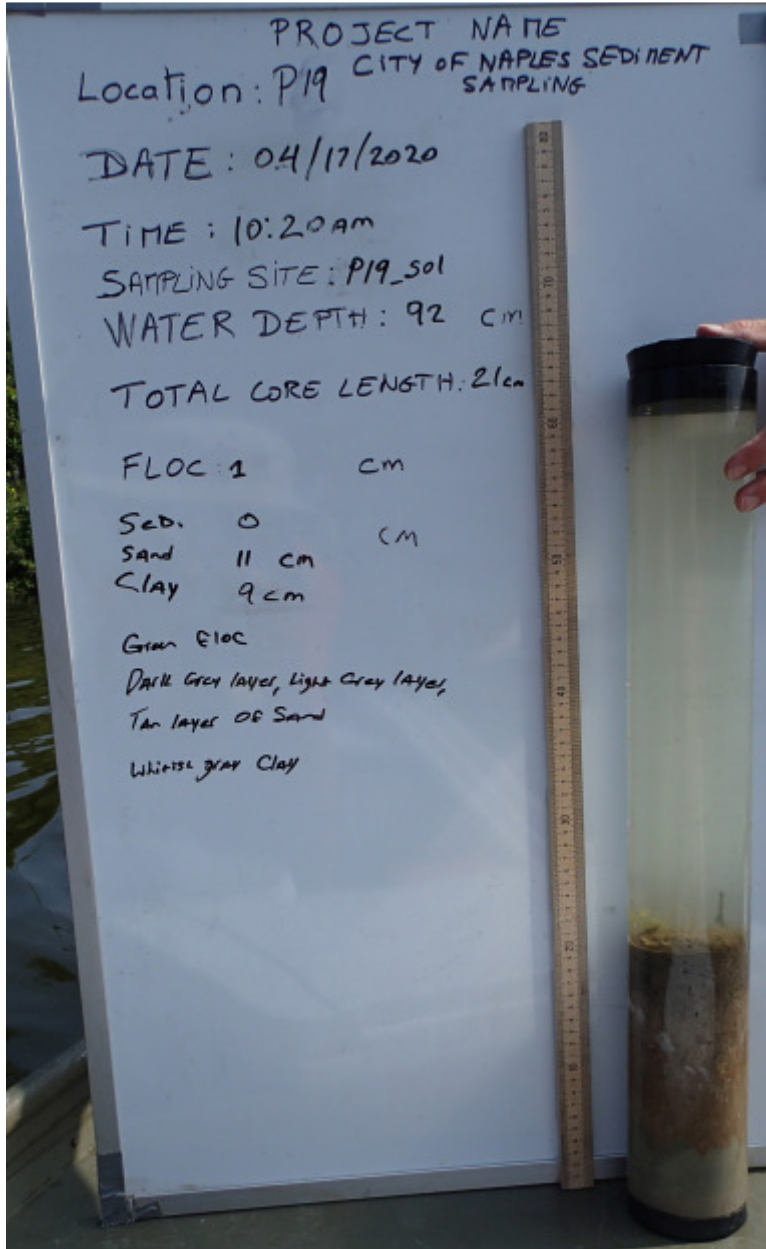 PROJECT NAME
CITY OF NAPLES SEDIMENT
SAMPLING
Location: P19
DATE: 04/17/2020
TIME: 10:20AM
SAMPLING SITE: P19_S01
WATER DEPTH: 92 cm
TOTAL CORE LENGTH: 21cm
FLOC: 1 cm
SED. 0 cm
Sand 11 cm
Clay 9 cm
Floc
Dark Grey layer, Light Grey layer,
Tan layer of Sand
gray Clay
80
70
60
50
40
30
20
10